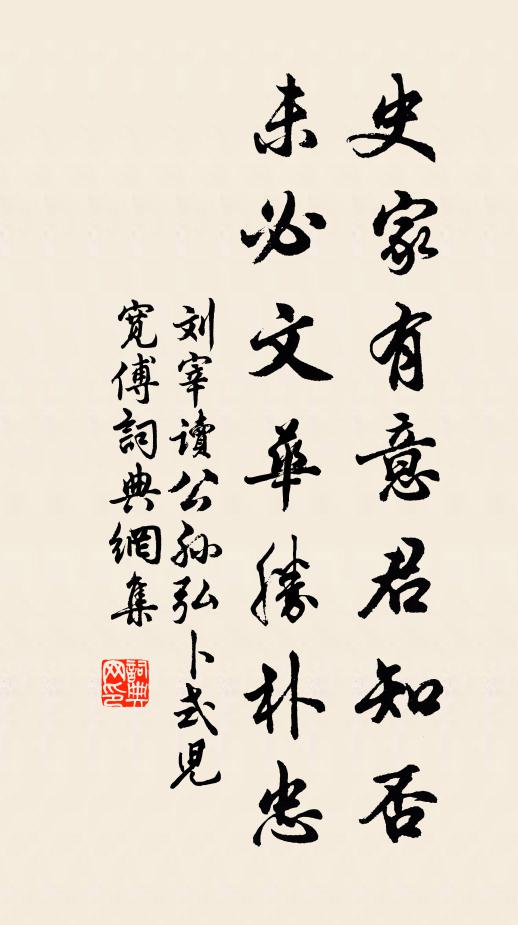 史家有意君知否
未必文華勝朴忠
刘宰讀公孙弘卜式児
寛傅詞典網集
詞典
网印